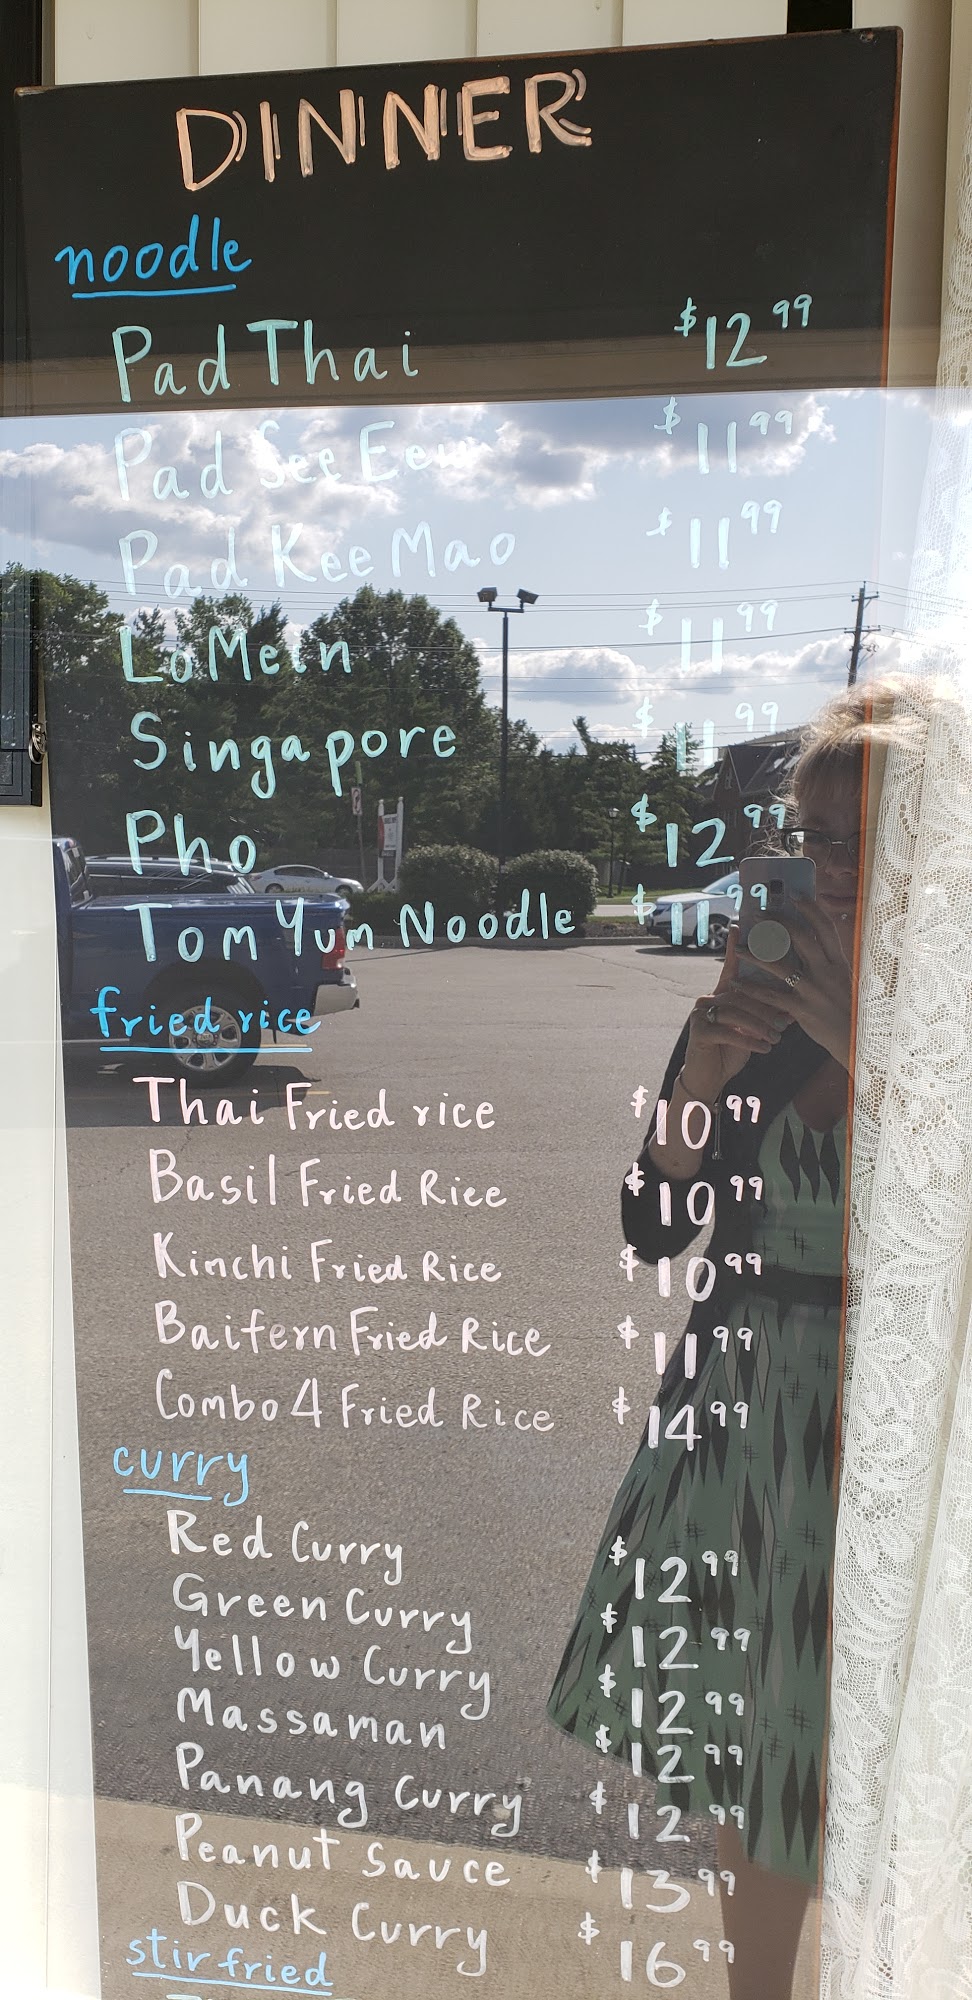 DINNER
noodle
Pad Thai $12.99
Pad See Eew $11.99
Pad Kee Mao $11.99
LoMein $11.99
Singapore $11.99
Pho $12.99
Tom Yum Noodle $11.99
fried rice
Thai Fried rice $10.99
Basil Fried Rice $10.99
Kinchi Fried Rice $10.99
Baifern Fried Rice $11.99
Combo 4 Fried Rice $14.99
curry
Red Curry $12.99
Green Curry $12.99
Yellow Curry $12.99
Massaman $12.99
Panang Curry $12.99
Peanut Sauce $13.99
Duck Curry $16.99
stir fried